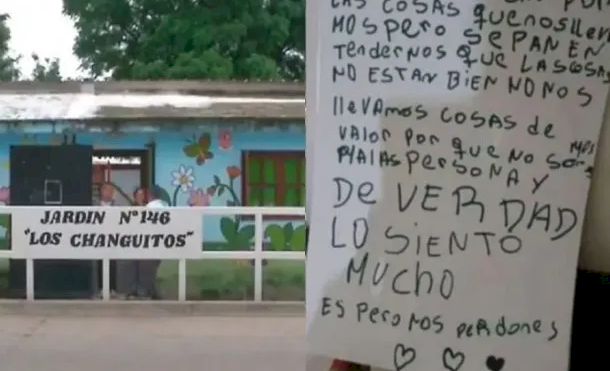 JARDIN Nº146
"LOS CHANGUITOS"
LAS COSAS quenosllev
MOS pero SEPAN EN
Tendernos QUE LASCOSAS
NO ESTAN BIEN NO NOS
llevAMOS COSAS de
VALOR POR QUE NO SOMOS
MALAS PERSONA Y
De VERDAD
LO SIENTO
MUCHO
ES Pero NOS PERDONES